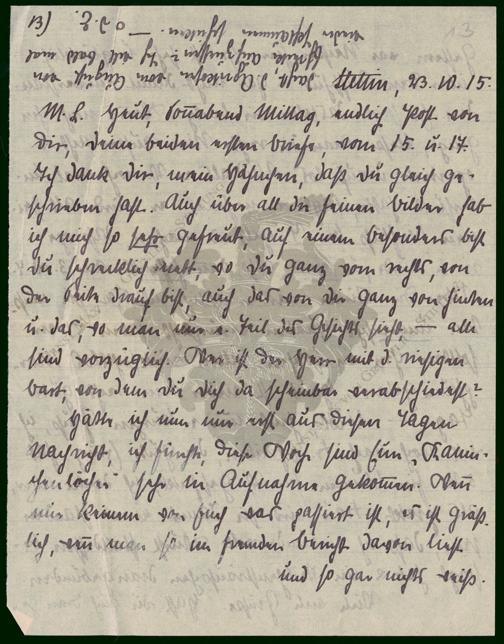 13)
Stettin, 23.10.15.
M. L. Heut, Sonnabend Mittag, endlich Post von
dir, deine beiden ersten briefe, vom 15. u. 17.
Ich dank dir, mein Hähnchen, daß du gleich ge-
schrieben hast. Auch über all die feinen bilder hab
ich mich so sehr gefreut, auf einem besonders bist
du schrecklich nett, wo du ganz vorn rechts, von
der Seite drauf bist, auch das von dir ganz von hinten
u. das, wo man nur e. Teil des Gesichts sieht, — alle
sind vorzüglich. Wer ist der Herr mit d. riesigen
bart, von dem du dich da scheinbar verabschiedest?
Hätte ich nur nur erst aus diesen Tagen
Nachricht, ich fürcht, diese Woche sind Eure „Kanin-
chenlöcher" sehr in Aufnahme gekommen. Wenn
nur keinem von Euch was passiert ist, es ist gräß-
lich, wenn man so im fremden bericht davon liest
und so gar nichts weiß.